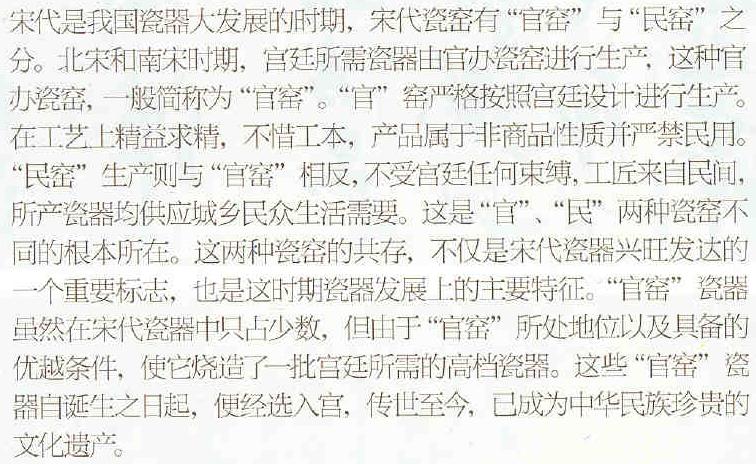 宋代是我国瓷器大发展的时期，宋代瓷窑有“官窑”与“民窑”之
分。北宋和南宋时期，宫廷所需瓷器由官办瓷窑进行生产，这种官
办瓷窑，一般简称为“官窑”。“官”窑严格按照宫廷设计进行生产。
在工艺上精益求精，不惜工本，产品属于非商品性质并严禁民用。
“民窑”生产则与“官窑”相反，不受宫廷任何束缚，工匠来自民间，
所产瓷器均供应城乡民众生活需要。这是“官”、“民”两种瓷窑不
同的根本所在。这两种瓷窑的共存，不仅是宋代瓷器兴旺发达的
一个重要标志，也是这时期瓷器发展上的主要特征。“官窑”瓷器
虽然在宋代瓷器中只占少数，但由于“官窑”所处地位以及具备的
优越条件，使它烧造了一批宫廷所需的高档瓷器。这些“官窑”瓷
器自诞生之日起，便经选入宫，传世至今，已成为中华民族珍贵的
文化遗产。